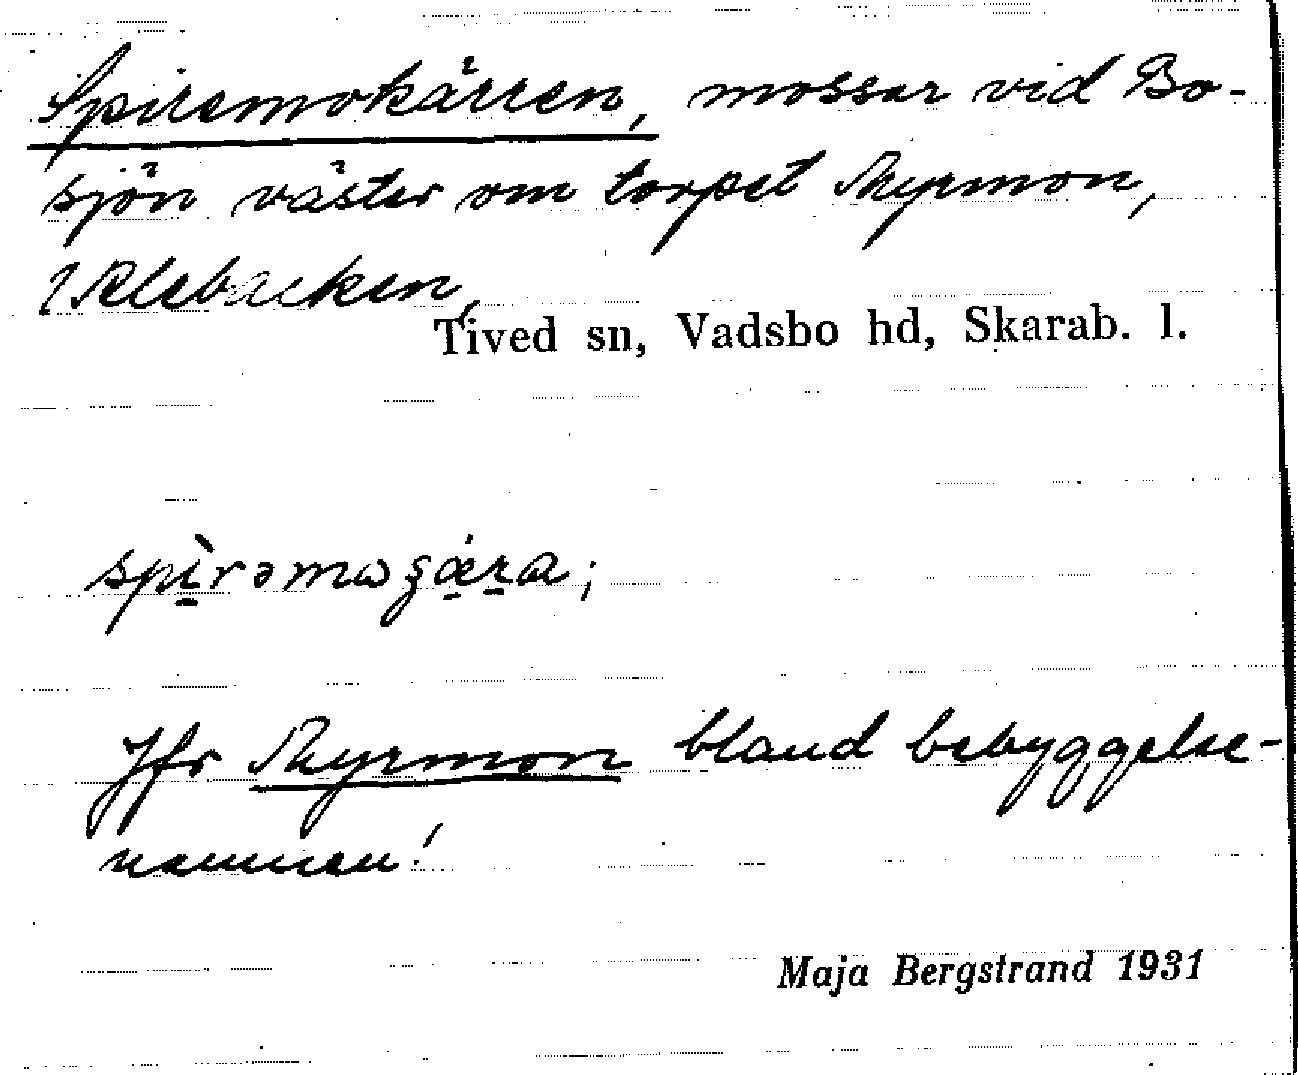 Spiremokärren, mossar vid Bo-
sjön väster om torpet Myrmon,
Plebacken,
Tived sn, Vadsbo hd, Skarab. l.
spìrəmωgǽra;
Jfr Myrmon bland bebyggelse-
namnen!
Maja Bergstrand 1931